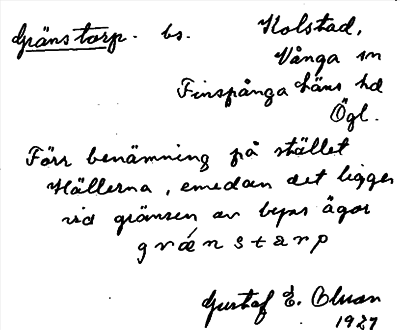 Gränstorp. bs. Kolstad,
Vånga sn
Finspånga läns hd
Ögl.
Förr benämning på stället
Hällerna, emedan det ligger
vid gränsen av byns ägor
grǽnstarp
Gustaf E. Olsson
1927